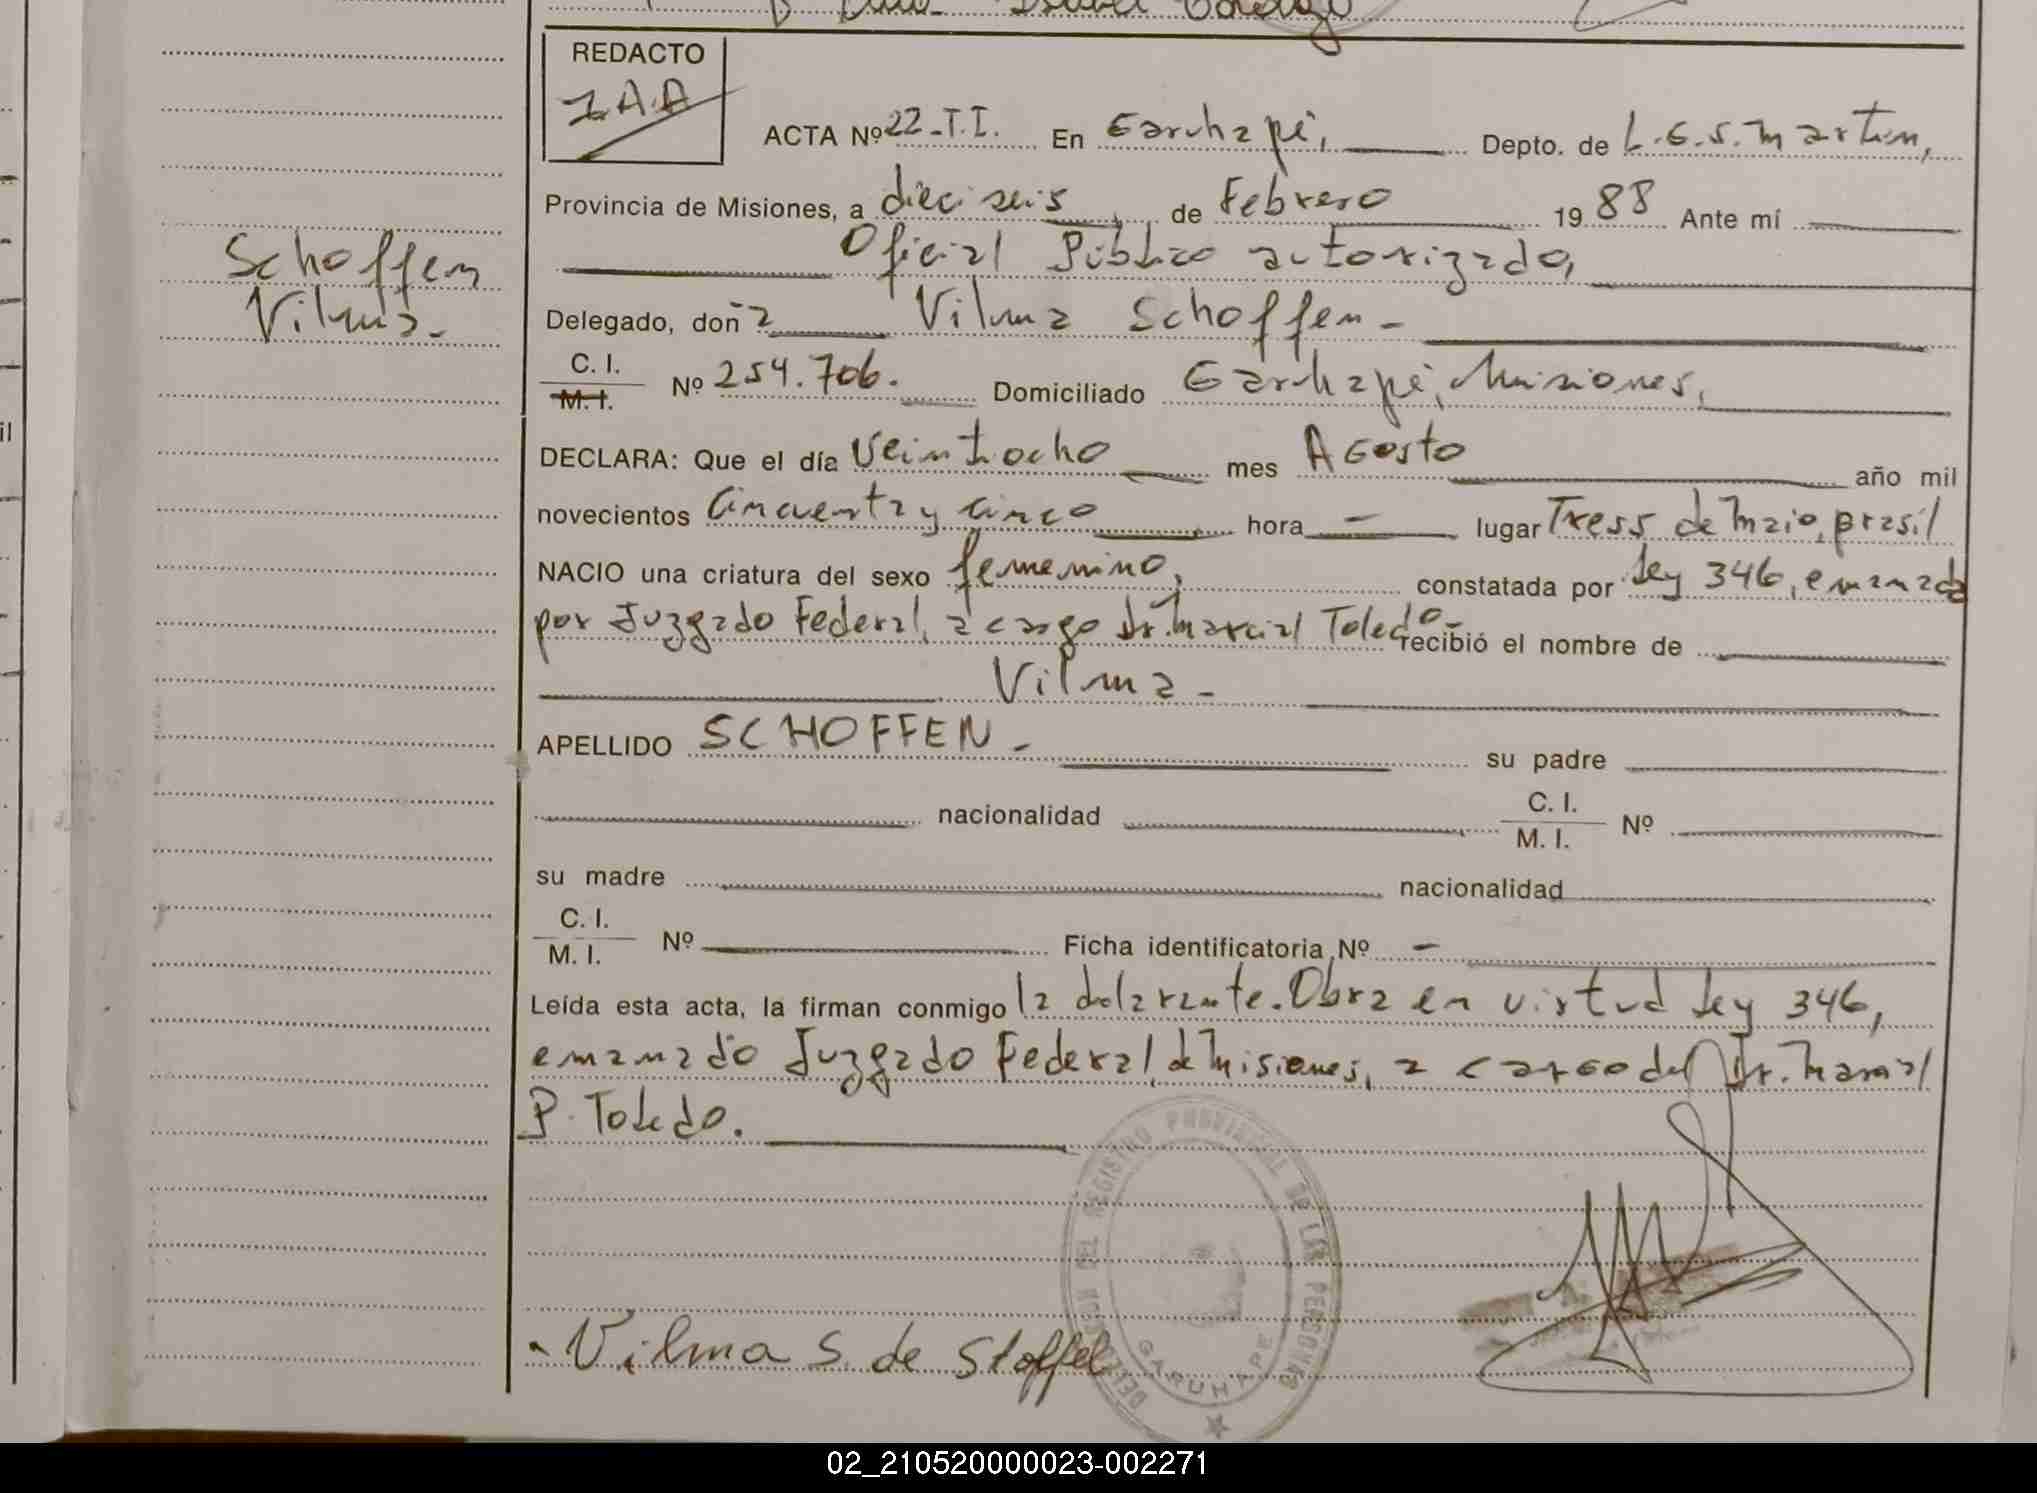 REDACTO
ACTA Nº 22-T.I. En Garuhapé, Depto. de L.G.S. Martin,
Provincia de Misiones, a dieciseis de Febrero 1988 Ante mí
Oficial Público autorizado,
Schoffen
Vilma.
Delegado, doña Vilma Schoffen -
C. I.
M. I.
Nº 254.706. Domiciliado Garuhapé, Misiones,
DECLARA: Que el día Veintiocho mes Agosto año mil
novecientos Cincuenta y cinco hora - lugar Tress de Maio, Brasil
NACIO una criatura del sexo femenino, constatada por Ley 346, emanada
por Juzgado Federal, a cargo Dr. Marcial Toledo- recibió el nombre de
Vilma -
APELLIDO SCHOFFEN - su padre
nacionalidad C. I.
M. I. Nº
su madre nacionalidad
C. I.
M. I. Nº Ficha identificatoria Nº -
Leída esta acta, la firman conmigo la declarante. Obra en virtud Ley 346,
emanado Juzgado Federal, de Misiones, a cargo del Dr. Marcial
P. Toledo.
Vilma S. de Stoffel
DELEGACION DEL REGISTRO PROVINCIAL DE LAS PERSONAS
GARUHAPE
02_210520000023-002271